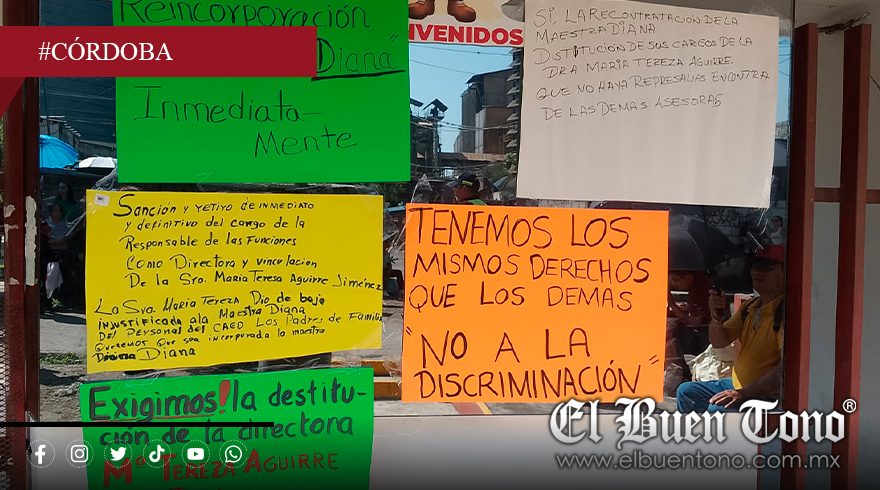 #CÓRDOBA
Reincorporación
"Diana"
Inmediata-
Mente
BIENVENIDOS
SI, LA RECONTRATACIÓN DE LA
MAESTRA DIANA
DSTITUCIÓN DE SUS CARGOS DE LA
DRA MARIA TEREZA AGUIRRE.
QUE NO HAYA REPRESALIAS ENCONTRA
DE LAS DEMAS ASESORAS
Sanción y retivo de inmediato
y definitivo del cargo de la
Responsable de las Funciones
Como Directora y vinculacion
De la Sra. Maria Teresa Aguirre Jiménez
La Sra Maria Tereza Dio de baja
injustificada a la Maestra Diana
Del Personal del CAED Los Padres de Familia
Queremos que sea incorporada la maestra
Diana
TENEMOS LOS
MISMOS DERECHOS
QUE LOS DEMAS
"NO A LA
DISCRIMINACIÓN"
Exigimos! la destitu-
ción de la directora
Mª TEREZA AGUIRRE
El Buen Tono®
www.elbuentono.com.mx